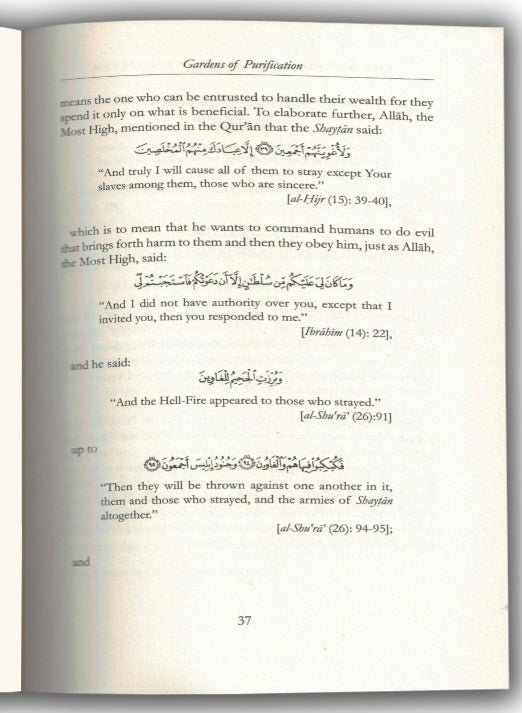 Gardens of Purification
means the one who can be entrusted to handle their wealth for they
spend it only on what is beneficial. To elaborate further, Allāh, the
Most High, mentioned in the Qur'ān that the Shayṭān said:
وَلَأُغْوِيَنَّهُمْ أَجْمَعِينَ ﴿٣٩﴾ إِلَّا عِبَادَكَ مِنْهُمُ الْمُخْلَصِينَ
“And truly I will cause all of them to stray except Your
slaves among them, those who are sincere.”
[al-Ḥijr (15): 39-40],
which is to mean that he wants to command humans to do evil
that brings forth harm to them and then they obey him, just as Allāh,
the Most High, said:
وَمَا كَانَ لِيَ عَلَيْكُم مِّن سُلْطَانٍ إِلَّا أَن دَعَوْتُكُمْ فَاسْتَجَبْتُمْ لِي
“And I did not have authority over you, except that I
invited you, then you responded to me.”
[Ibrāhim (14): 22],
and he said:
وَبُرِّزَتِ الْجَحِيمُ لِلْغَاوِينَ
“And the Hell-Fire appeared to those who strayed.”
[al-Shu'rā' (26):91]
up to
فَكُبْكِبُوا فِيهَا هُمْ وَالْغَاوُونَ ﴿٩٤﴾ وَجُنُودُ إِبْلِيسَ أَجْمَعُونَ ﴿٩٥﴾
“Then they will be thrown against one another in it,
them and those who strayed, and the armies of Shayṭān
altogether.”
[al-Shu'rā' (26): 94-95];
and
37